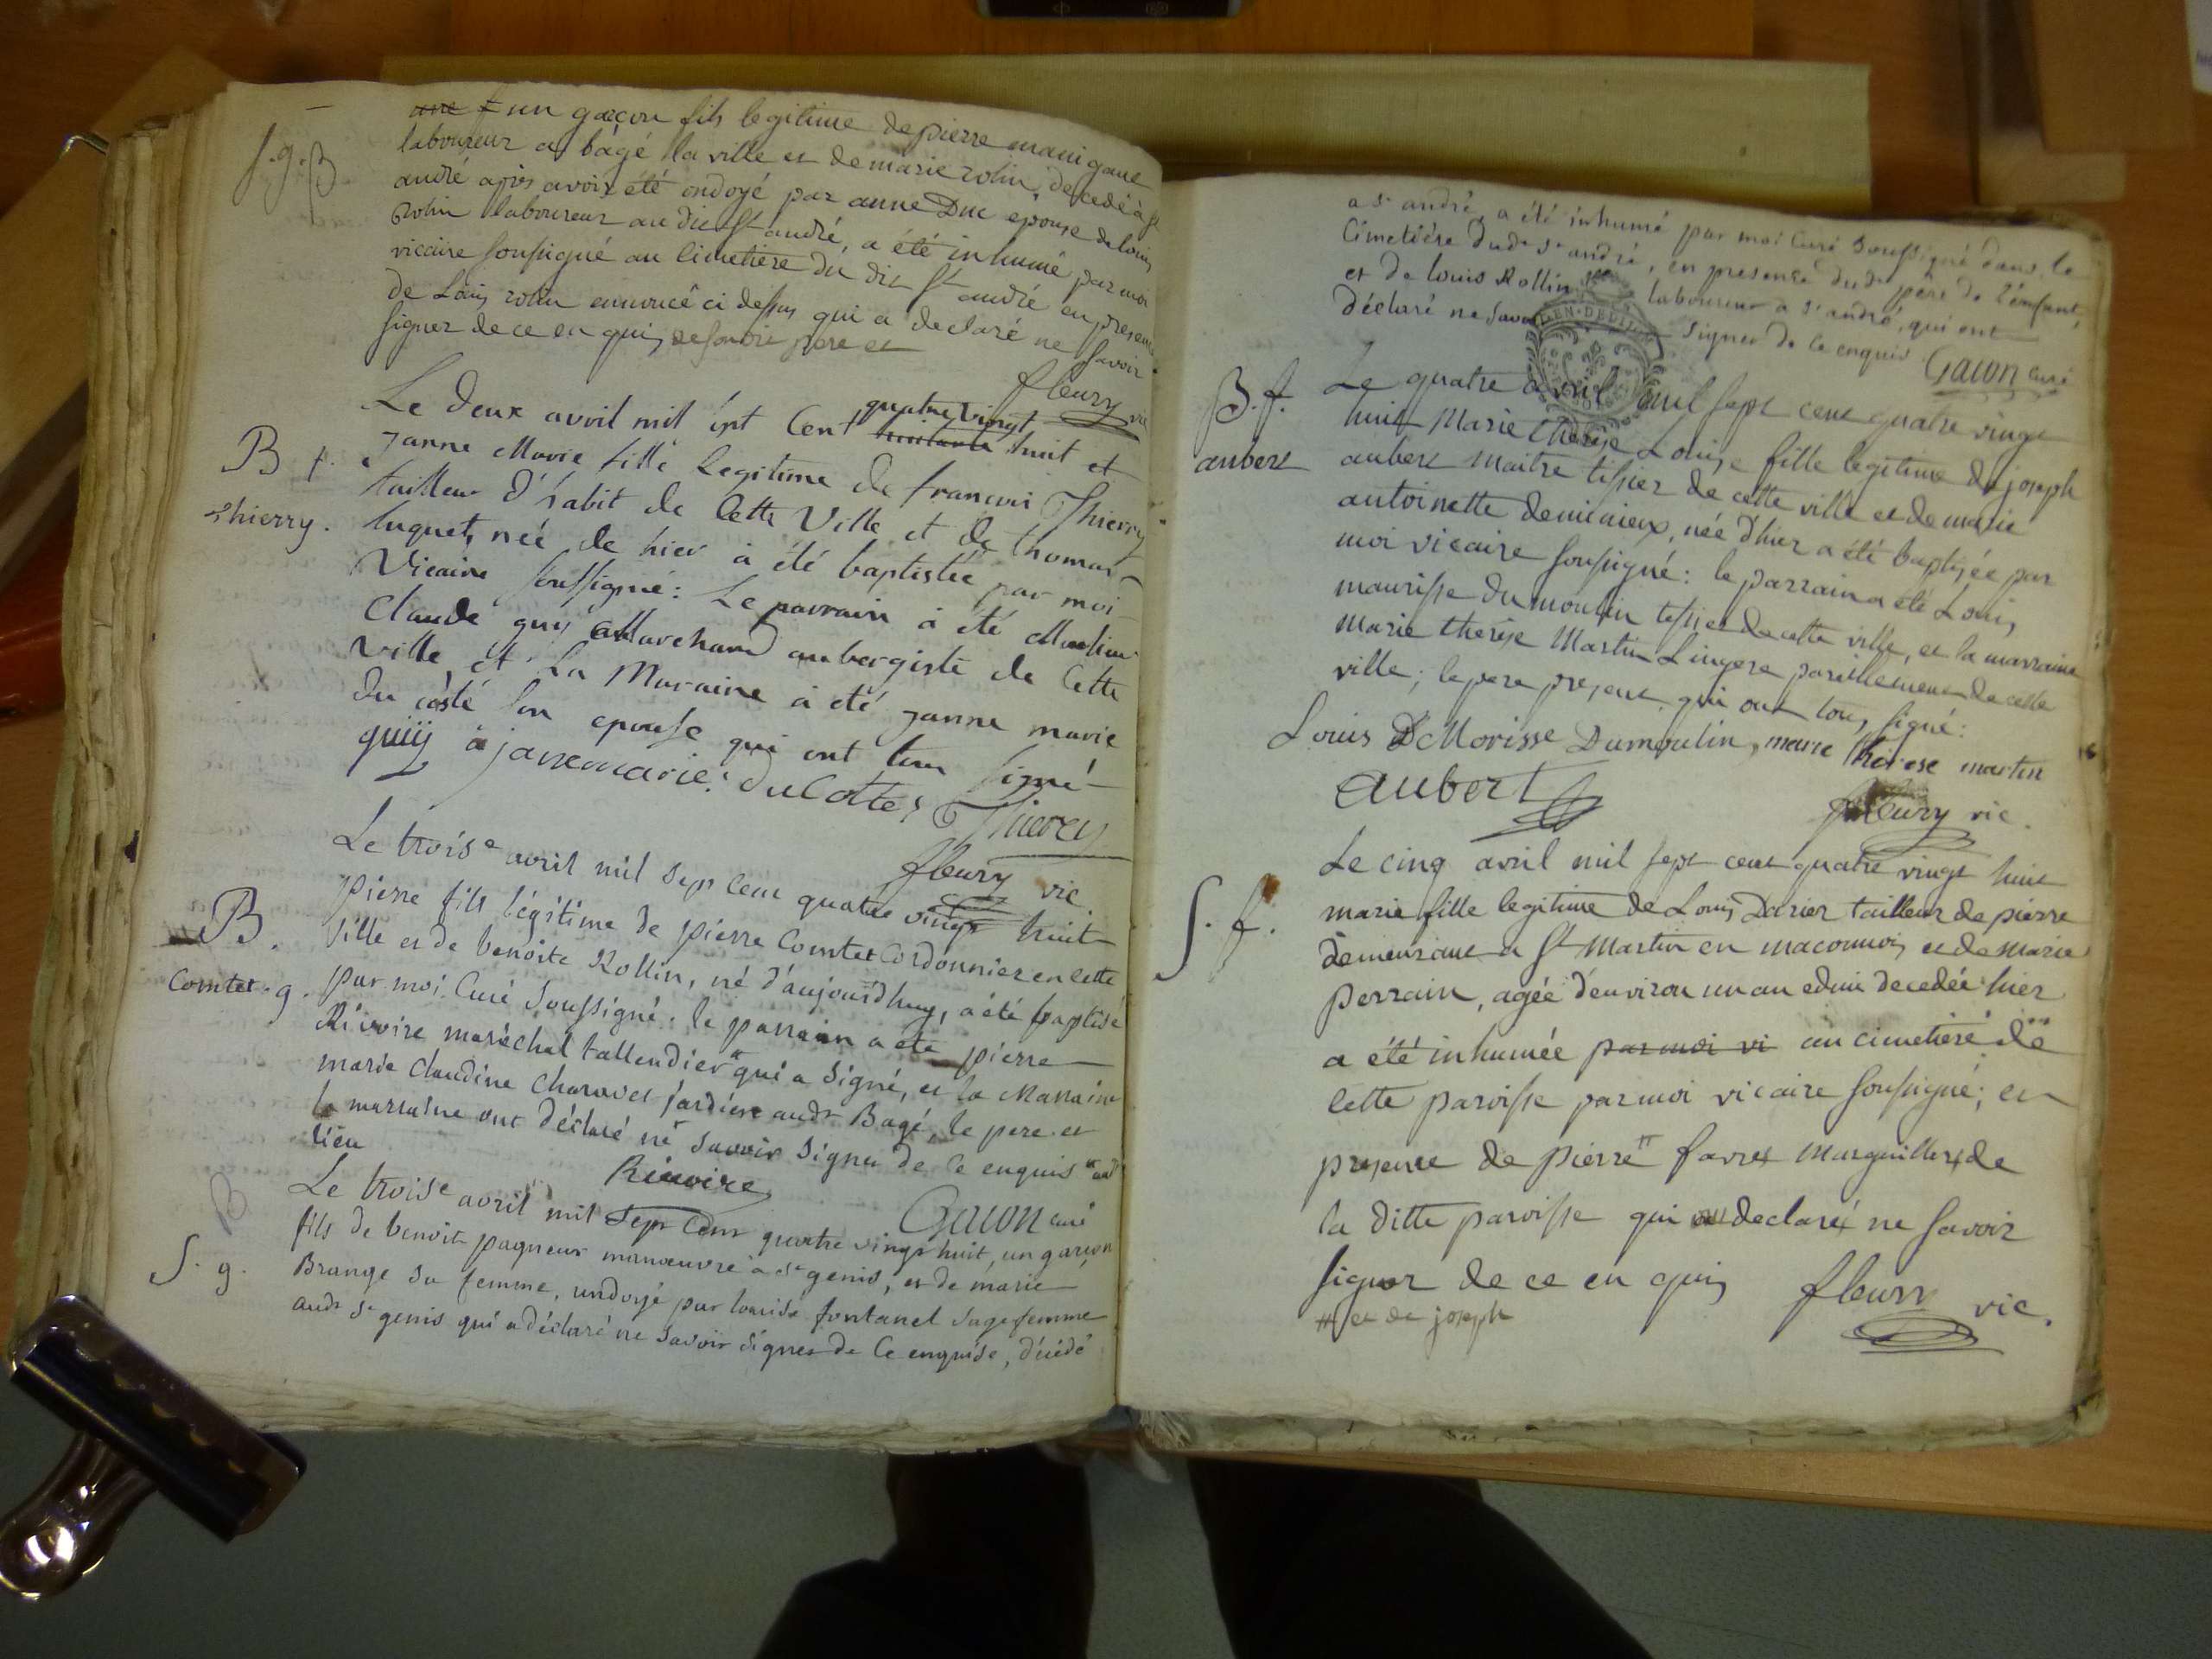 un garçon fils legitime de pierre manigaut
S. g. B
laboureur a bâgé la ville et de marie rolin, decedé à St
andré après avoir été ondoyé par anne Duc epouse de louis
Rolin laboureur au dit St andré, a été inhumé par moi
vicaire soussigné au cimetiere du dit St andré en presence
de Louis rolin ennoncé ci dessus qui a declaré ne savoir
signer de ce en quis
fleury vic
Le deux avril mil sept Cent quatre vingt huit et
B f.
Janne Marie fille Legitime de francois Thierry
thierry.
tailleur d'habit de Cette Ville et de thomas
luquet, néé de hier à été baptistée par moi
Vicaire soussigné: Le parrain à été
Claude guy Marchand aubergiste de Cette
Ville et La Maraine à été Janne marie
du côté son epouse qui ont tous signé
guiy à janemarie: du Cottes Thiery
fleury vic
Le trois e avril mil sept cent quatre vingt huit
B.
pierre fils légitime de pierre Comtet Cordonnier en cette
Comtet. g.
Ville et de benoite Rollin, né d'aujourdhuy, a été baptisé
par moi Curé soussigné. le parrain a été pierre
Rivoire maréchal tallendier qui a signé, et la Marraine
marie Claudine Charavet jardiere audt Bagé, le pere et
la marraine ont déclaré ne savoir signer de ce enquis
lieu
Rivoire
Gacon curé
B
Le trois e avril mil sept cent quatre vingt huit, un garçon
S. g.
fils de benoit pagneux manœuvre à st genis, et de marie
Brange sa femme, undoyé par louise fontanel sage femme
audt st genis qui a déclaré ne savoir signer de ce enquise, décédé
a st andré, a été inhumé par moi Curé soussigné dans le
Cimetière dudt st andré, en presence dudt père de l'enfant,
et de louis Rollin laboureur a st andré, qui ont
déclaré ne savoir signer de ce enquis
Gacon curé
B. f.
Le quatre avril mil sept cent quatre vingt
huit Marie therese Louise fille legitime de joseph
aubert
aubert maitre tissier de cette ville et de marie
antoinette demiaieux, née d'hier a été baptisée par
moi vicaire soussigné: le parrain a été Louis
maurisse dumoulin tissier de cette ville, et la marraine
marie therese Martin Lingere pareillement de cette
ville; le pere present, qui ont tous signé:
Louis DMorisse Dumoulin, marie therese martin
aubert
fleury vic.
Le cinq avril mil sept cent quatre vingt huit
S. f.
marie fille legitime de Louis Darier tailleur de pierre
demeurant a St Martin en maconnois et de marie
perrain, agée d'environ un an edmi decedée hier
a été inhumée par moi vi au cimetiere de
cette paroisse par moi vicaire soussigné; en
presence de pierre # favre marguilliers de
la ditte paroisse qui ont declaré ne savoir
signer de ce en quis
fleury vic.
# et de joseph